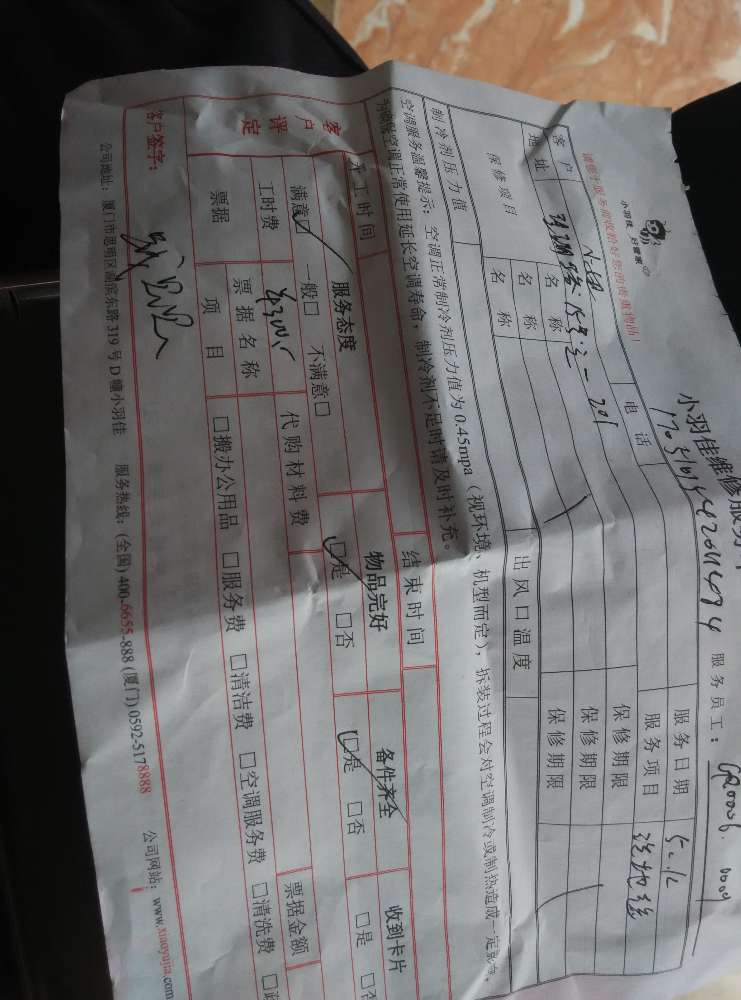 小羽佳 好管家
小羽佳维修服务
请您于服务前收拾好您的贵重物品!
服务员工:
客户 电话 服务日期 5.12
地址 服务项目
保修项目 名称 保修期限
名称 保修期限
名称 保修期限
制冷剂压力值 出风口温度
空调服务温馨提示:空调正常制冷剂压力值为0.45mpa(视环境、机型而定),拆装过程会对空调制冷或制热造成一定影响,
为确保空调正常使用延长空调寿命,制冷剂不足时请及时补充。
开工时间 结束时间
客户评定 服务态度 物品完好 备件齐全 收到卡片
满意□ 一般□ 不满意□ □是 □否 □是 □否 □是
工时费 代购材料费 票据金额
票据 票据名称
项目 □搬办公用品 □服务费 □清洁费 □空调服务费 □清洗费
客户签字:
公司地址:厦门市思明区湖滨东路319号D幢小羽佳 服务热线:(全国)400-6655-888 (厦门)0592-5178888 公司网站:www.xiaoyujia.com